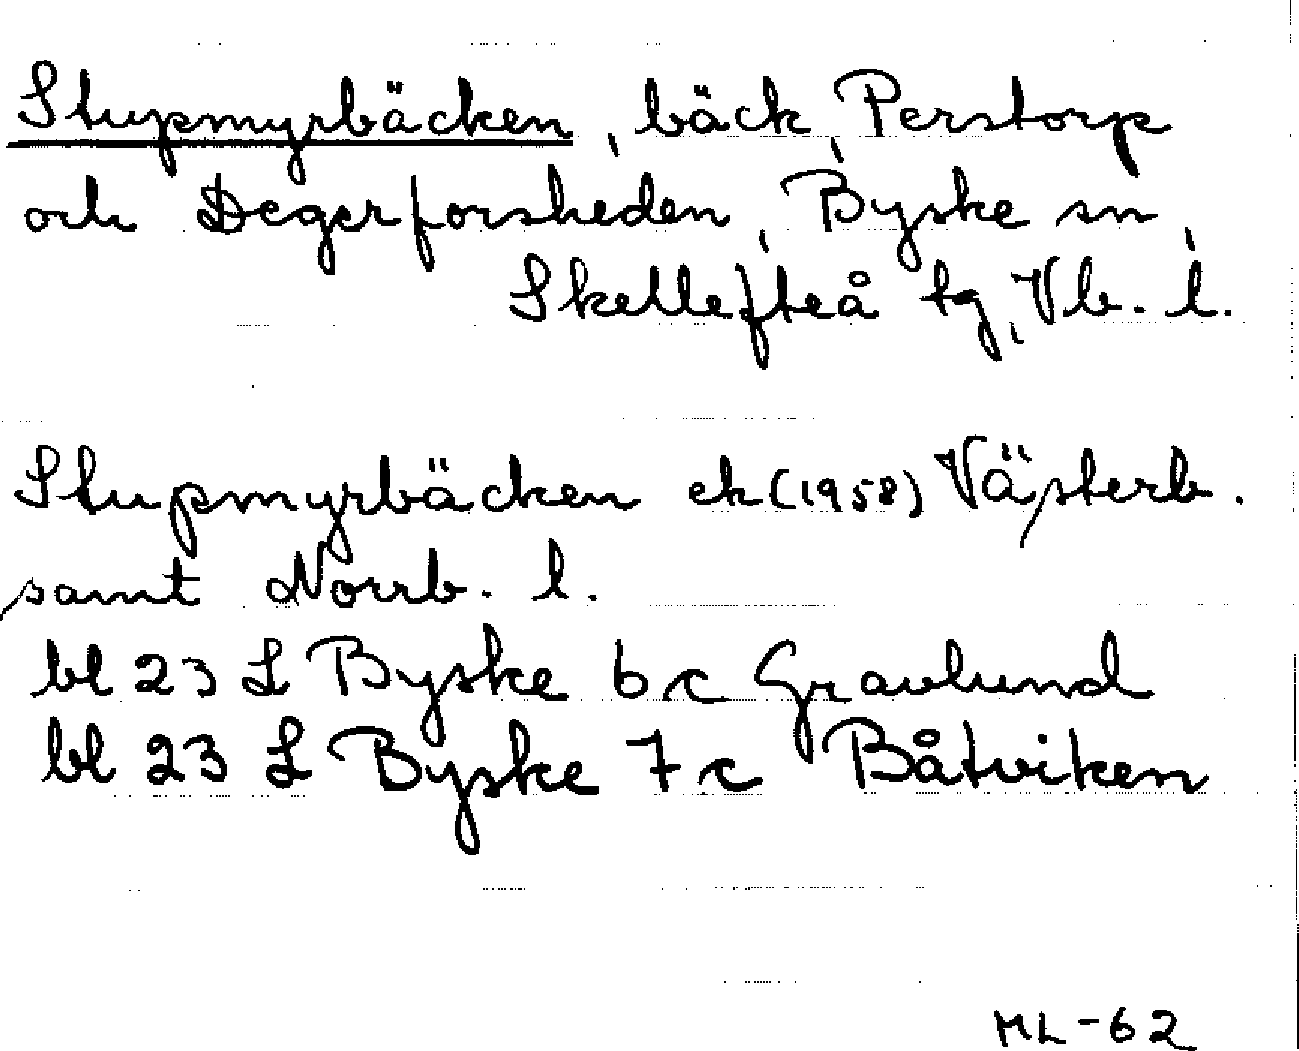 Stupmyrbäcken, bäck, Perstorp
och Degerforsheden, Byske sn,
Skellefteå tg, Vb. l.
Stupmyrbäcken ek (1958) Västerb.
samt Norrb. l.
bl 23 L Byske 6c Gravlund
bl 23 L Byske 7c Båtviken
ML-62